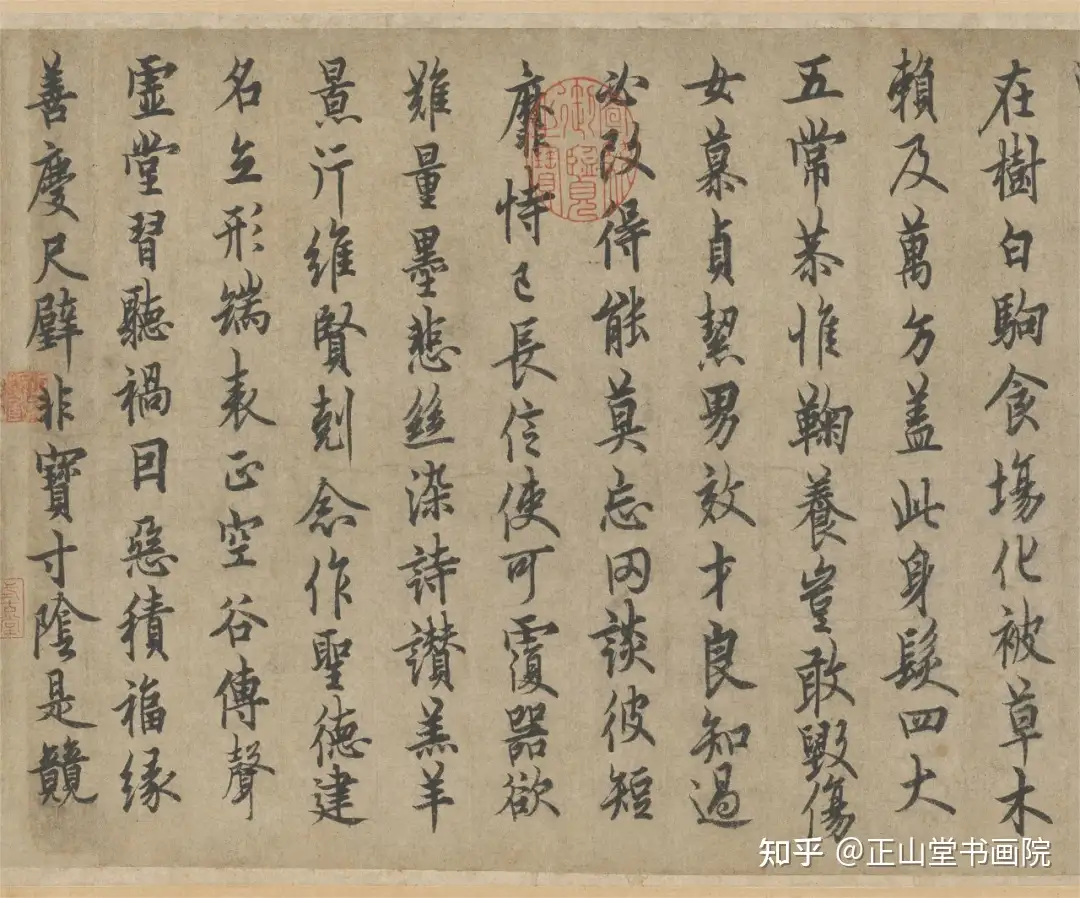 在樹白駒食塲化被草木
賴及萬方盖此身髮四大
五常恭惟鞠養豈敢毀傷
女慕貞絜男效才良知過
必改得能莫忘罔談彼短
靡恃己長信使可覆器欲
難量墨悲絲染詩讚羔羊
景行維賢剋念作聖德建
名立形端表正空谷傳聲
虛堂習聽禍因惡積福緣
善慶尺璧非寶寸陰是競
知乎 @正山堂书画院